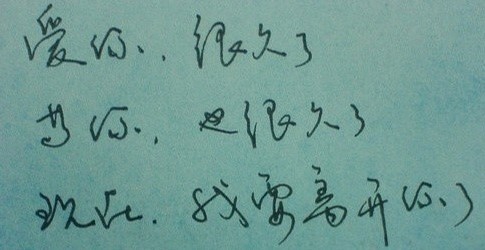 爱你.,很久了
等你.,也很久了
现在.我要离开你了